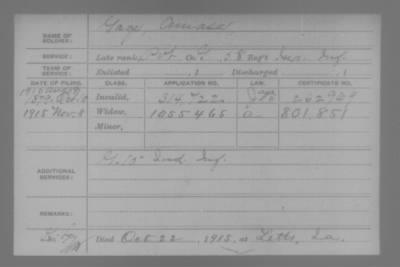 NAME OF SOLDIER: Gage, Amasa
SERVICE: Late rank, Pvt Co. 58 Reg't Ind. Inf.
TERM OF SERVICE: Enlisted , 1 Discharged , 1
DATE OF FILING. CLASS. APPLICATION NO. LAW. CERTIFICATE NO.
1879 Oct Invalid, 314,722
1915 Nov. 8 Widow, 1055465 801,851
Minor,
ADDITIONAL SERVICES: Ind. Inf.
REMARKS:
Died Oct 22, 1915, at Letts, Ia.